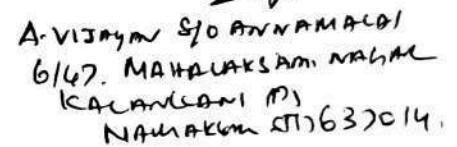 A. VIJAYAN S/O ANNAMALAI
6/47. MAHALAKSAMI NAGAR
KALANGANI (P)
NAMAKKAL (DT) 637014.